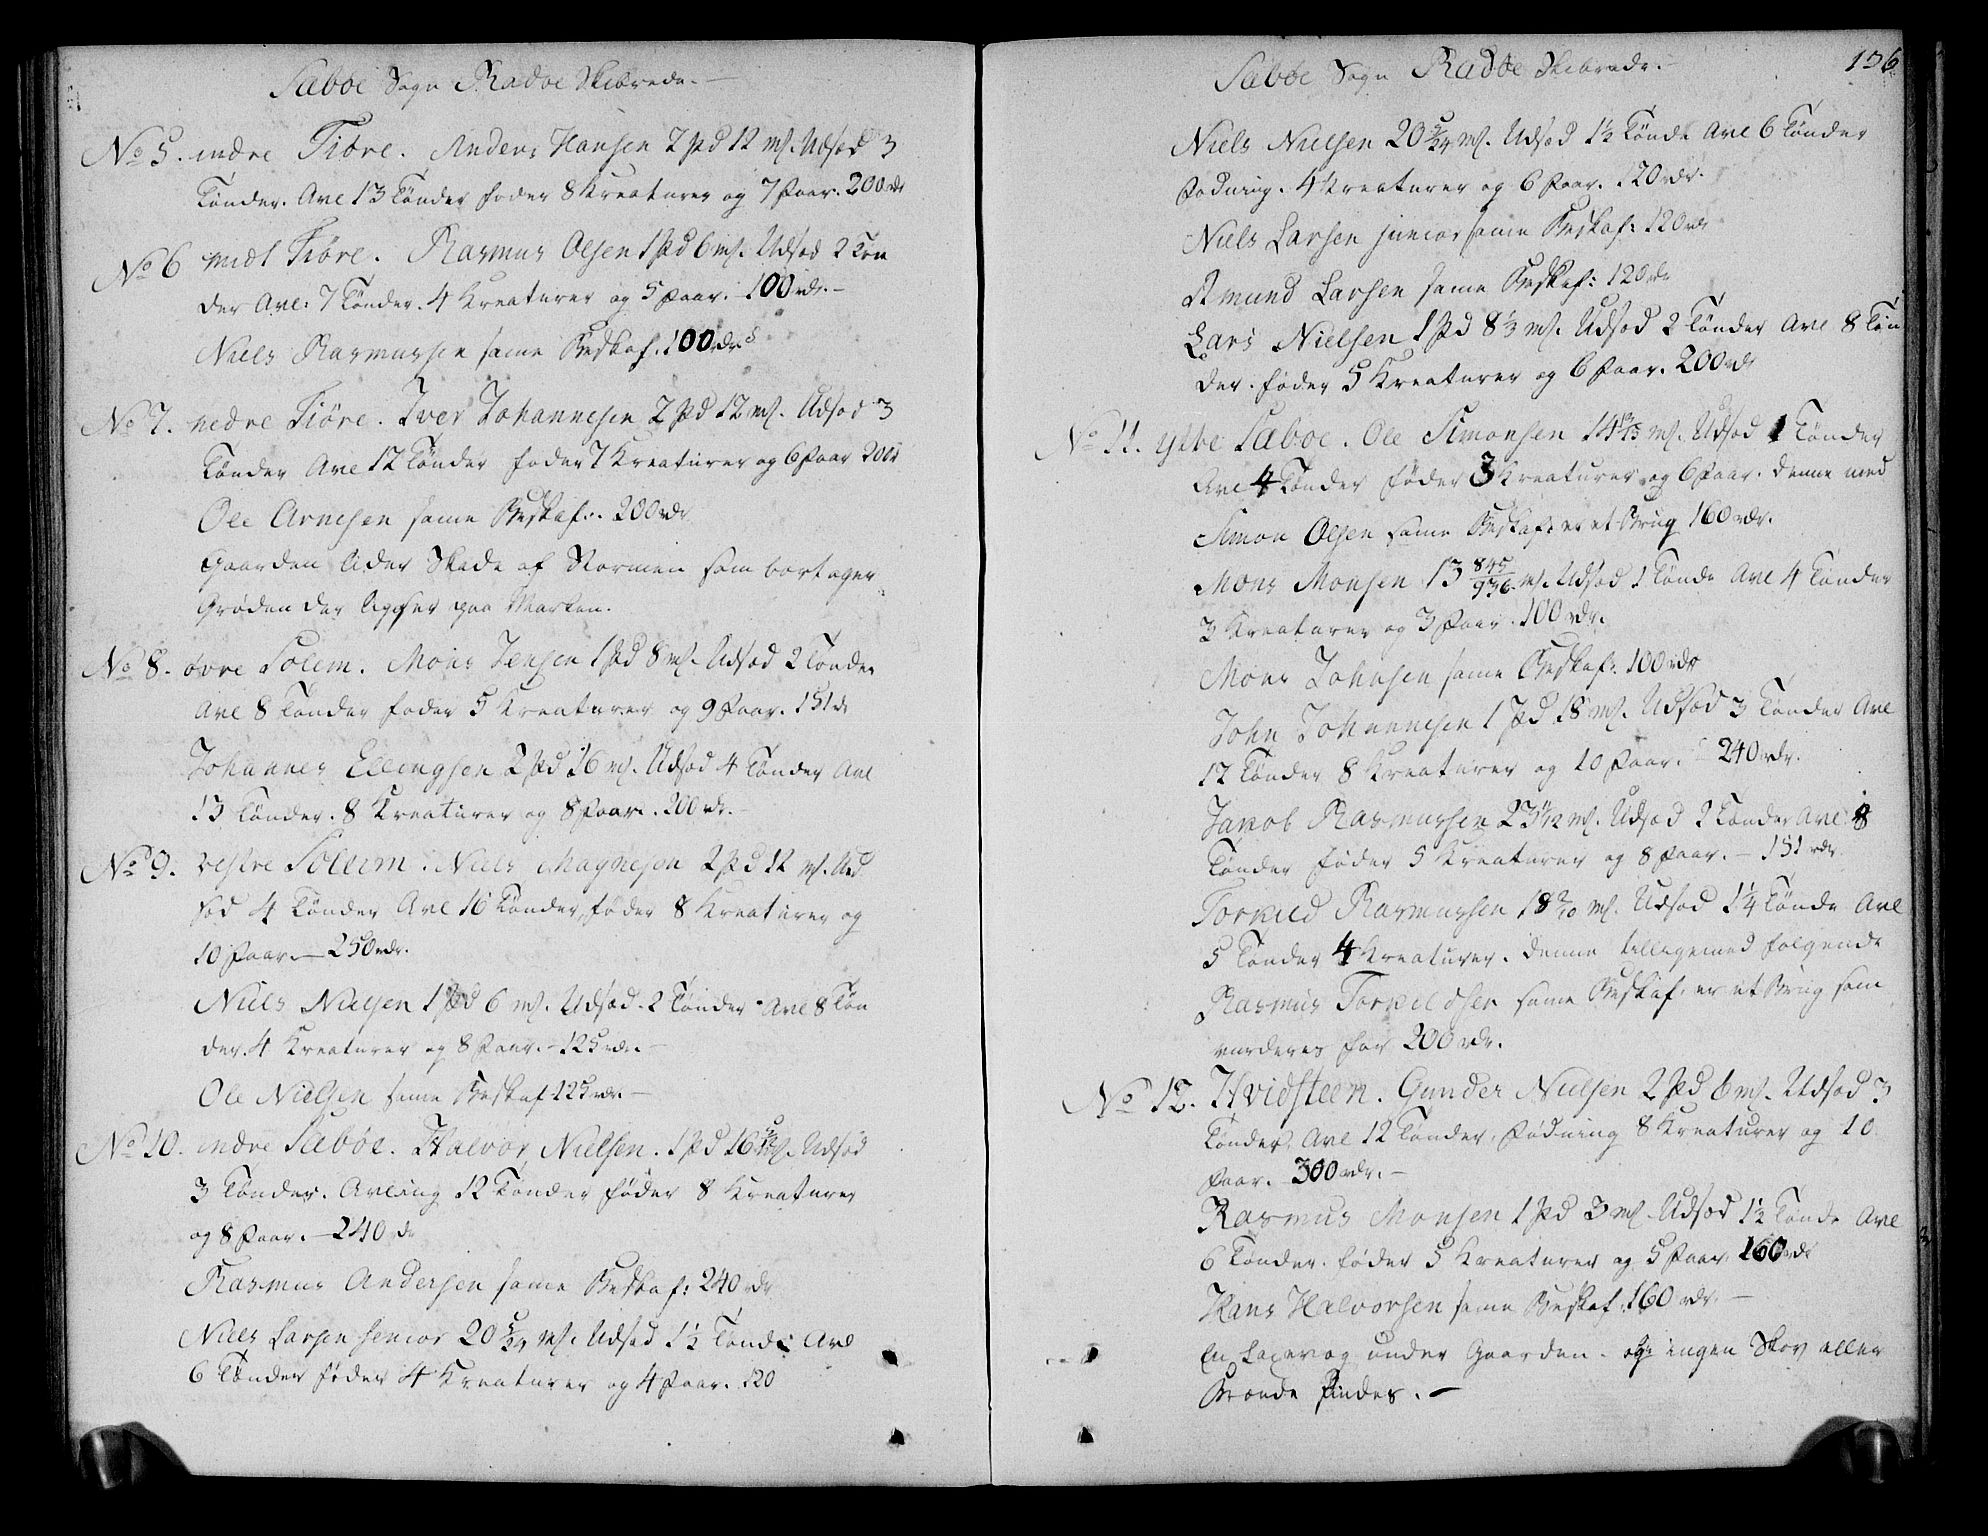 Sæboe Sogn Radoe Skibrede. —
No 5. indre Fiøre. Anders Hansen 2 Pd 12 mk. Udsød 3
Tønder. Avl 13 Tønder føder 8 Kreaturer og 7 Faar. 200 rdr
No 6 midt Fiøre. Rasmus Olsen 1 Pd 6 mk. Udsød 2 Tøn
der Avl: 7 Tønder. 4 Kreaturer og 5 Faar. 100 rdr. —
Niels Rasmussen same Beskaf. 100 rdr
No 7. nedre Fiøre. Iver Johannesen 2 Pd 12 mk. Udsød 3
Tønder Avl 12 Tønder føder 7 Kreaturer og 6 Faar 200 r
Ole Arnesen same Beskaf:. 200 rdr
Gaarden lider Skade af Stormen som borttager
Grøden der ligger paa Marken.
No 8. øvre Solem. Mons Jensen 1 Pd 8 mk. Udsød 2 Tønder
Avl 8 Tønder føder 5 Kreaturer og 9 Faar. 151 r
Johannes Ellingsen 2 Pd 16 mk. Udsød 4 Tønder Avl
13 Tønder. 8 Kreaturer og 8 Faar. 200 rdr. —
No 9. vestre Solem. Niels Magnesen 2 Pd 12 mk. Ud
sød 4 Tønder Avl 16 Tønder, føder 8 Kreaturer og
10 Faar. — 250 rdr.
Niels Nielsen 1 Pd 6 mk. Udsød 2 Tønder Avl 8 Tøn
der. 4 Kreaturer og 8 Faar. — 125 rdr. —
Ole Nielsen same Beskaf 125 rdr. —
No 10. indre Sæbøe. Halvor Nielsen. 1 Pd 16 5/12 mk. Udsød
3 Tønder. Avling 12 Tønder føder 8 Kreaturer
og 8 Faar. — 240 r
Rasmus Andersen same Beskaf: 240 rdr
Niels Larsen senior 20 5/24 mk. Udsød 1 1/2 Tønde Avl
6 Tønder føder 4 Kreaturer og 4 Faar. 120
Sæbøe Sogn Radøe Skibrede. — 136
Niels Nielsen 20 5/24 mk. Udsød 1 1/2 Tønde Avl 6 Tønder
Fødning. 4 Kreaturer og 6 Faar. 120 rdr.
Niels Larsen junior same Beskaf: 120 rdr
Amund Larsen same Beskaf: 120 rdr
Lars Nielsen 1 Pd 8 1/3 mk. Udsød 2 Tønder Avl 8 Tøn
der. føder 5 Kreaturer og 6 Faar. 200 rdr
No 11. ytre Sæboe. Ole Simonsen 14 mk. Udsød 1 Tønder
Avl 4 Tønder føder 3 Kreaturer og 6 Faar. denne med
Simon Olsen same Beskaf: er et Brug 160 rdr.
Mons Monsen 13 845/936 mk. Udsød 1 Tønde Avl 4 Tønder
3 Kreaturer og 3 Faar. 100 rdr.
Mons Johnsen same Beskaf: 100 rdr
John Johannesen 1 Pd 18 mk. Udsød 3 Tønder Avl
12 Tønder 8 Kreaturer og 10 Faar. — 240 rdr.
Jakob Rasmussen 23 1/12 mk. Udsød 2 Tønder Avl 8
Tønder føder 5 Kreaturer og 8 Faar. — 151 rdr
Torkild Rasmussen 18 mk. Udsød 1 1/4 Tønde Avl
5 Tønder 4 Kreaturer. denne tilligemed følgende
Rasmus Torkildsen same Beskaf: er et Brug som
vurderes for 200 rdr.
No 12. Hvidsteen. Gunder Nielsen 2 Pd 6 mk. Udsød 3
Tønder. Avl 12 Tønder, Fødning 8 Kreaturer og 10
Faar. 300 rdr. —
Rasmus Monsen 1 Pd 3 mk. Udsød 1 1/2 Tønde Avl
6 Tønder. føder 5 Kreaturer og 5 Faar 160 rdr
Hans Halvorsen same Beskaf. 160 rdr. —
En Laxevog under Gaarden. og ingen Skov eller
Brænde findes. —